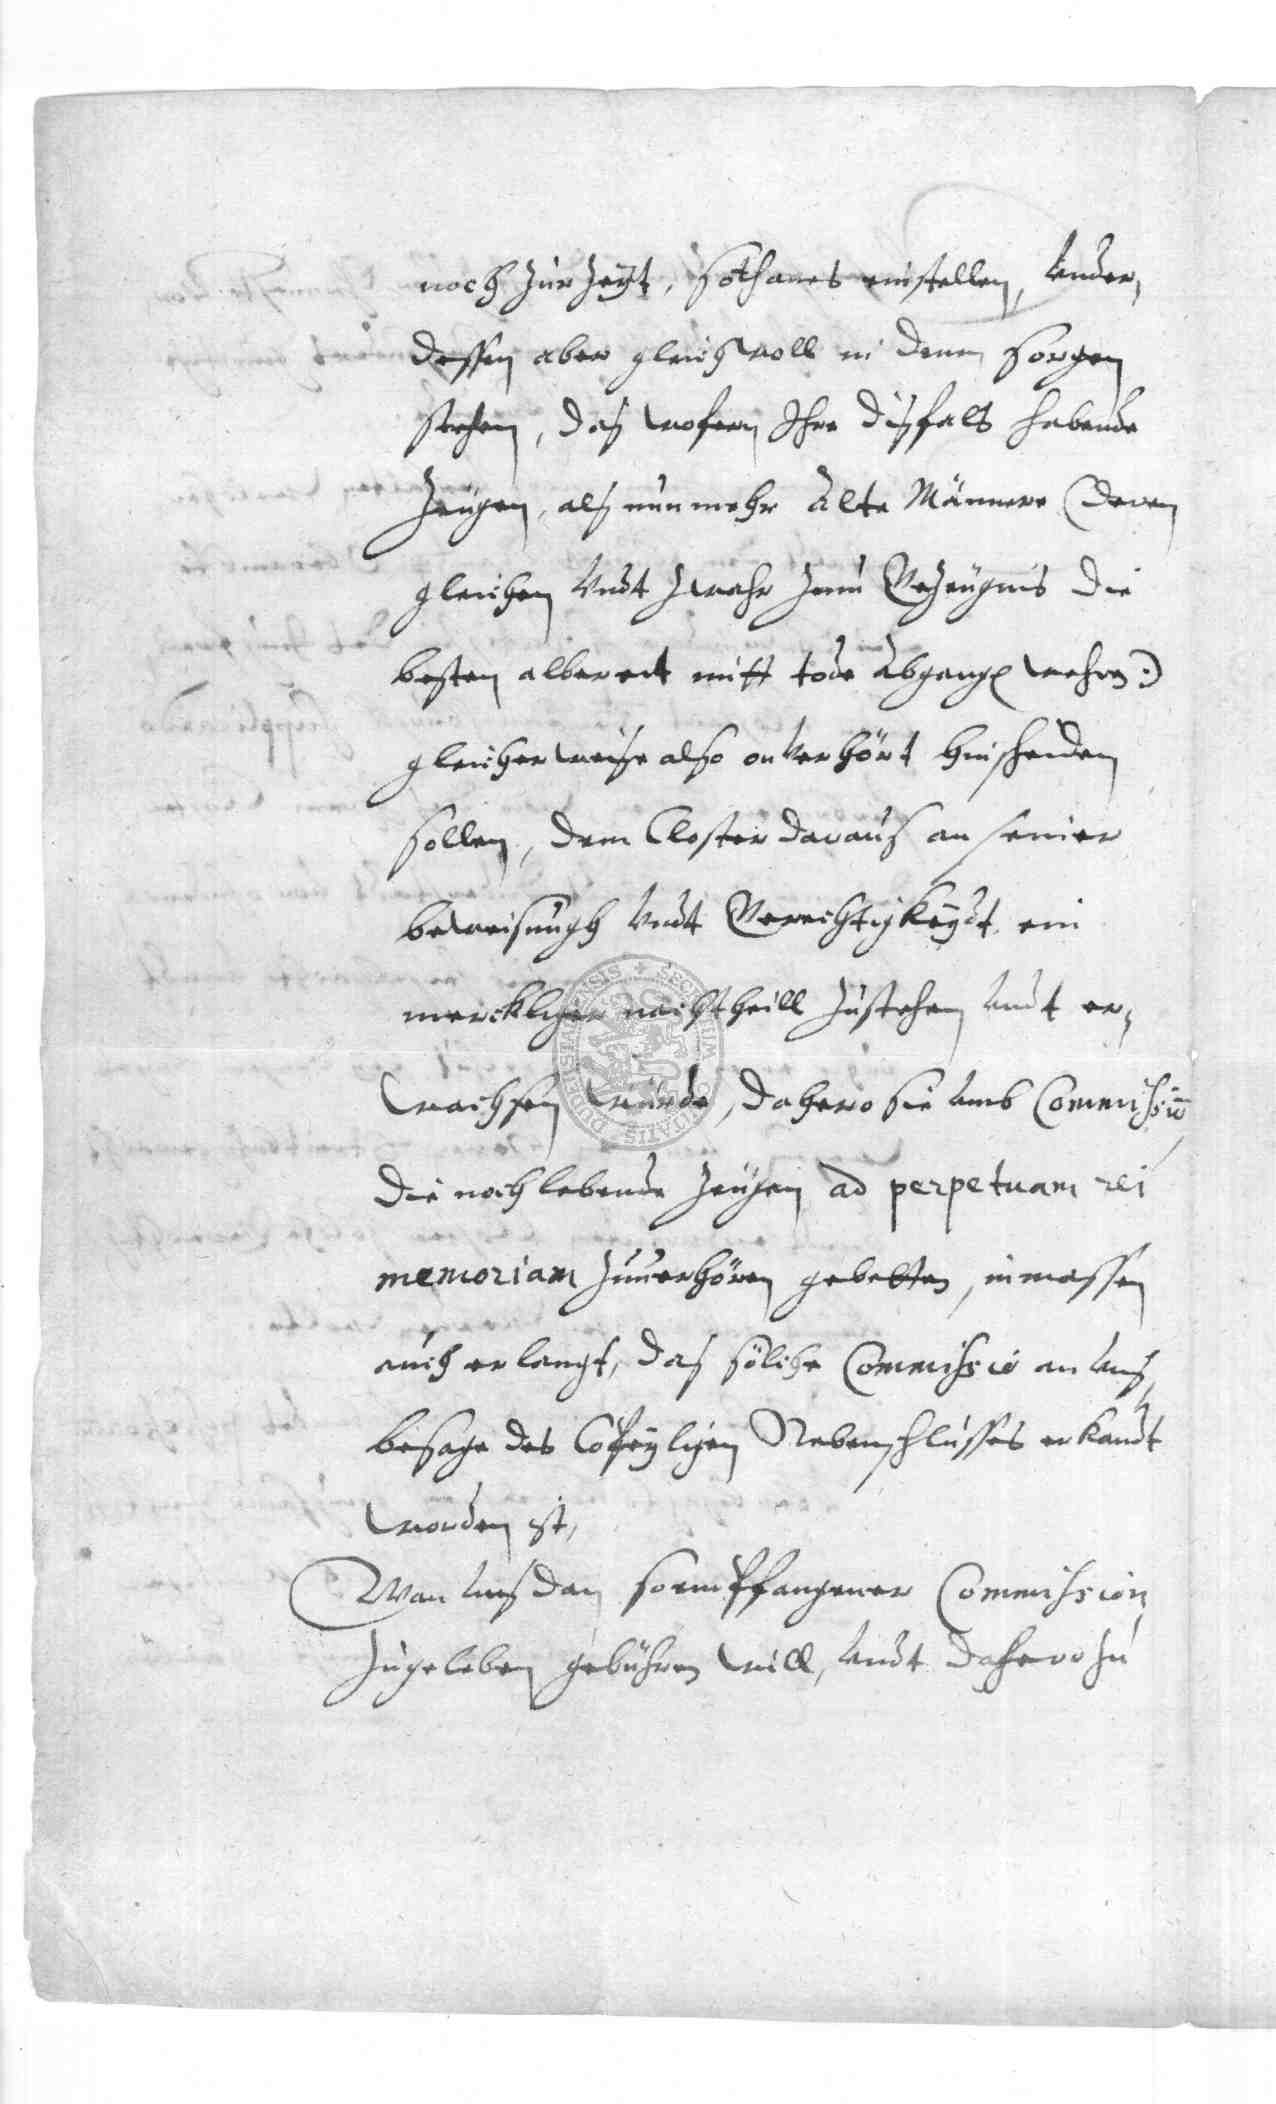 noch zur Zeyt, sothanes einstellen, Under,
dessen aber gleichwoll in denen sorgen
stehen, das wofern Ihre disfals habende
Zeugen, als nunmehr alte Männere (deren
gleichen Undt zwahr zum Gezeugnis die
besten albereit mitt tode abgangen wehren:)
gleicherweise also onverhört hinscheiden
sollen, dem Closter daraus an seiner
beweisungh Undt Gerechtigkeydt ein
mercklicher nachtheill zustehen Undt er,
wachsen würde, dahero sie umb Commission
die noch lebende Zeugen ad perpetuam rei
memoriam zuuerhören gebetten, inmassen
auch erlangt, das solche Commissio an Uns,
besage des Copeyligen Nebenschlusses erkandt
worden ist,
Wan uns dan so empffangener Commission
zugeleben gebühren will, Undt dahero zu
SECRETUM CIVITATIS DUDERSTADENSIS